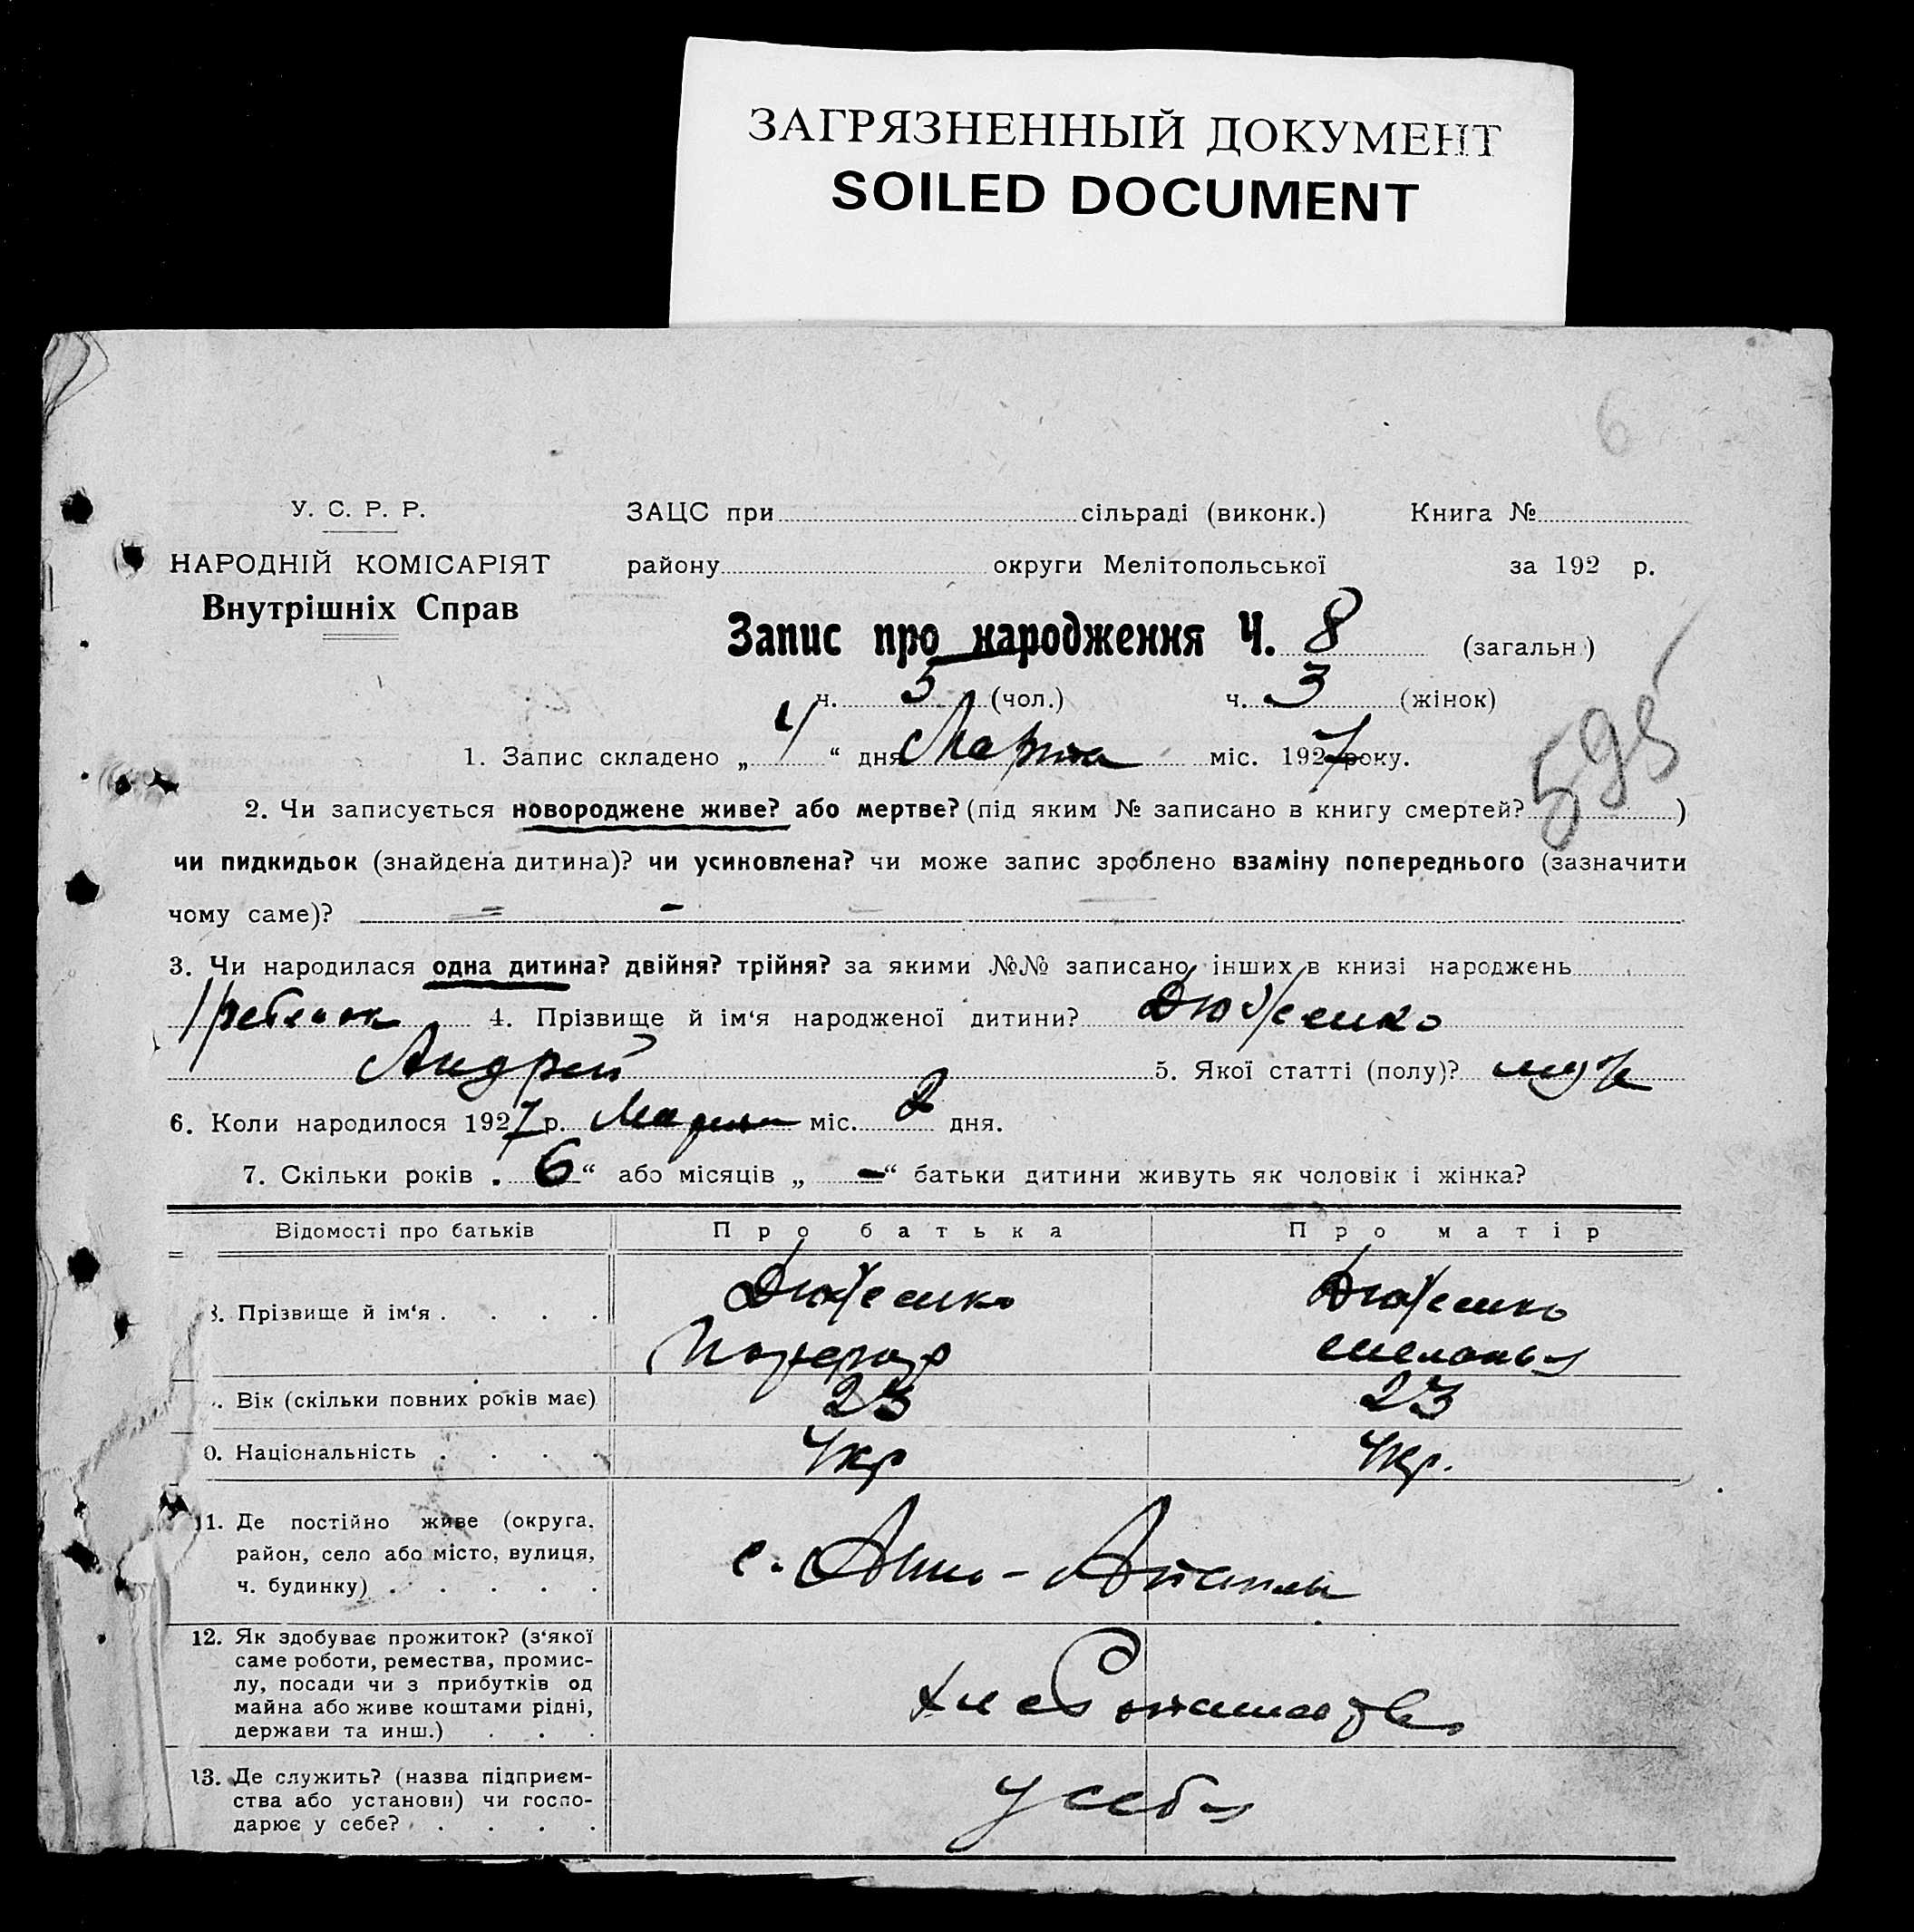 ЗАГРЯЗНЕННЫЙ ДОКУМЕНТ
SOILED DOCUMENT
6
У. С. Р. Р.
НАРОДНІЙ КОМІСАРІЯТ
Внутрішніх Справ
ЗАЦС при сільраді (виконк.) Книга №
району округи Мелітопольської за 192 р.
Запис про народження Ч. 8 (загальн.)
ч. 5 (чол.) ч. 3 (жінок)
595
1. Запис складено „ 4 “ дня Марта міс. 1927 року.
2. Чи записується новороджене живе? або мертве? (під яким № записано в книгу смертей? )
чи пидкидьок (знайдена дитина)? чи усиновлена? чи може запис зроблено взаміну попереднього (зазначити
чому саме)? = -
3. Чи народилася одна дитина? двійня? трійня? за якими №№ записано інших в книзі народжень
1 ребенок 4. Прізвище й ім‘я народженої дитини? Дюженко
Андрей 5. Якої статті (полу)? муж
6. Коли народилося 1927 р. Марта міс. 2 дня.
7. Скільки років „ 6 “ або місяців „ - “ батьки дитини живуть як чоловік і жінка?
Відомості про батьків Про батька Про матір
8. Прізвище й ім‘я . . . . Дюженко Дюженко
. Вік (скільки повних років має) 23 23
0. Національність . . . . Укр Укр.
11. Де постійно живе (округа,
район, село або місто, вулиця,
ч. будинку) . . . . .
с.
12. Як здобуває прожиток? (з‘якої
саме роботи, ремества, промис-
лу, посади чи з прибутків од
майна або живе коштами рідні,
держави та инш.) . . .
хлебопашество
13. Де служить? (назва підприєм-
ства або установи) чи госпо-
дарює у себе? . . . .
у себя